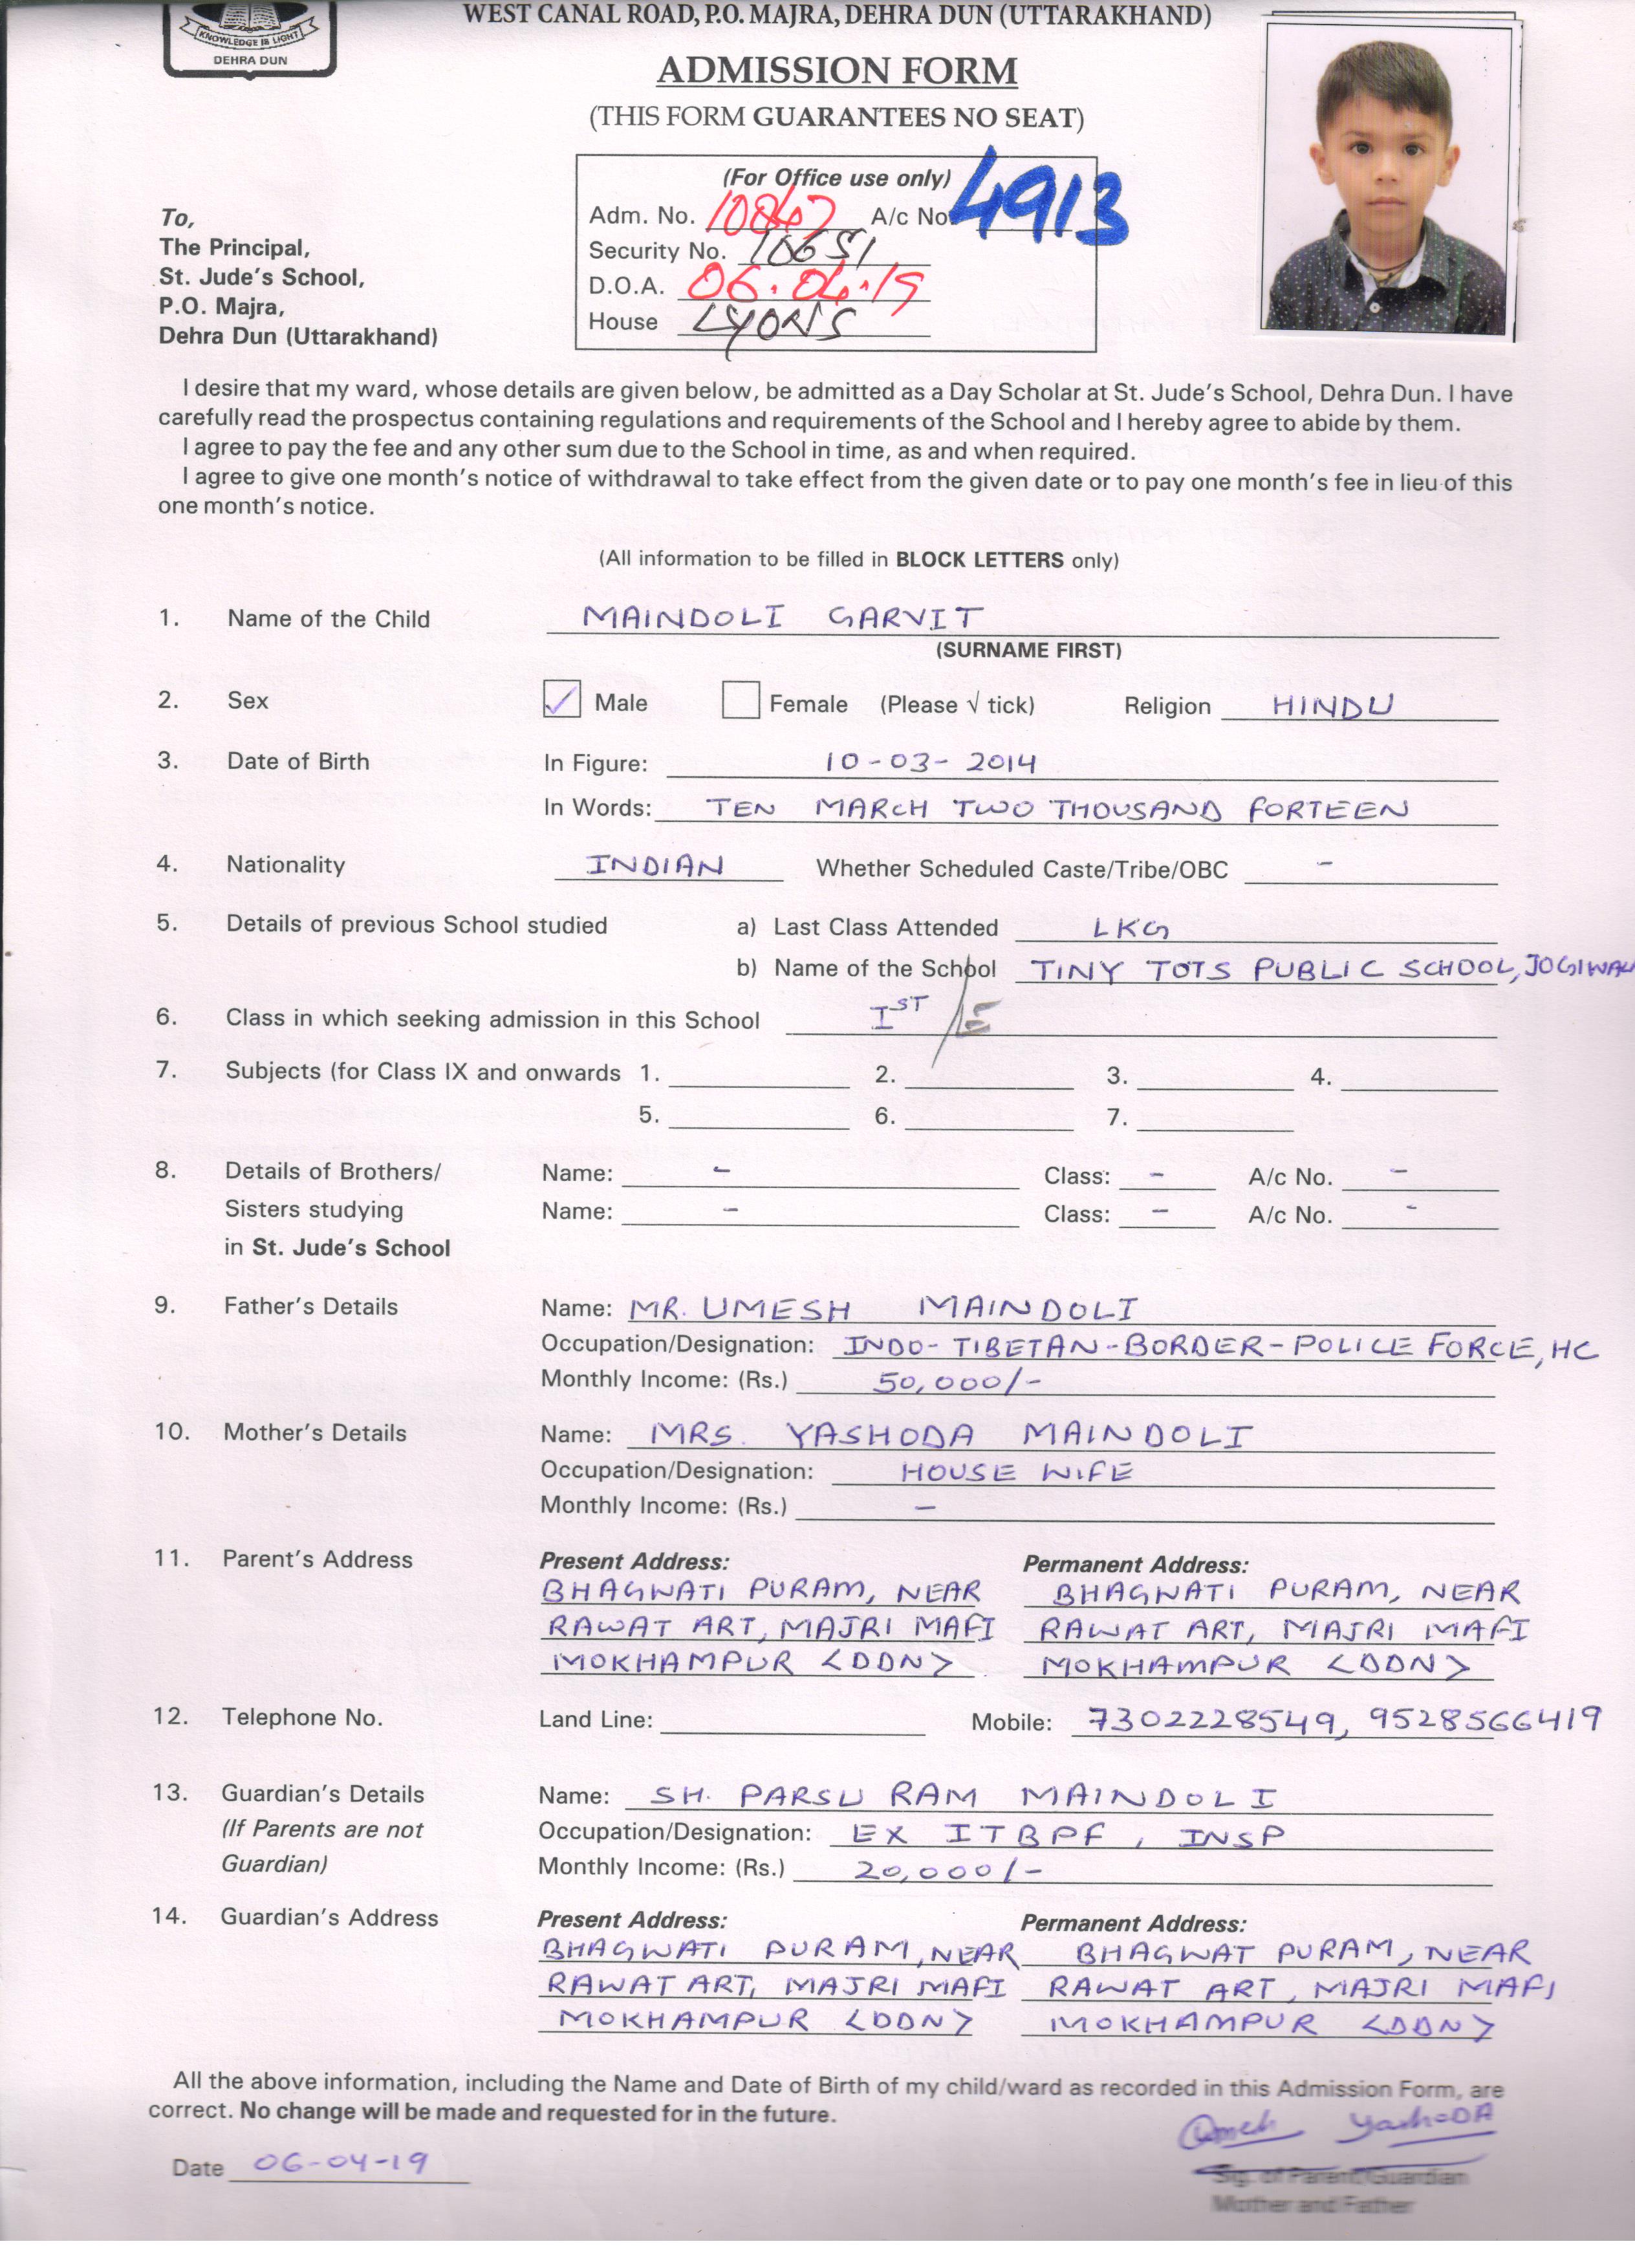 WEST CANAL ROAD, P.O. MAJRA, DEHRA DUN (UTTARAKHAND)
KNOWLEDGE IS LIGHT
DEHRA DUN
ADMISSION FORM
(THIS FORM GUARANTEES NO SEAT)
(For Office use only)
Adm. No. 10847 A/c No. 4913
Security No. 10651
D.O.A. 06.04.19
House LYONS
To,
The Principal,
St. Jude's School,
P.O. Majra,
Dehra Dun (Uttarakhand)
I desire that my ward, whose details are given below, be admitted as a Day Scholar at St. Jude's School, Dehra Dun. I have
carefully read the prospectus containing regulations and requirements of the School and I hereby agree to abide by them.
I agree to pay the fee and any other sum due to the School in time, as and when required.
I agree to give one month's notice of withdrawal to take effect from the given date or to pay one month's fee in lieu of this
one month's notice.
(All information to be filled in BLOCK LETTERS only)
1. Name of the Child MAINDOLI GARVIT
(SURNAME FIRST)
2. Sex ✓ Male Female (Please √ tick) Religion HINDU
3. Date of Birth In Figure: 10-03-2014
In Words: TEN MARCH TWO THOUSAND FORTEEN
4. Nationality INDIAN Whether Scheduled Caste/Tribe/OBC -
5. Details of previous School studied a) Last Class Attended LKG
b) Name of the School TINY TOTS PUBLIC SCHOOL, JOGIWAL
6. Class in which seeking admission in this School IST / E
7. Subjects (for Class IX and onwards 1. 2. 3. 4.
5. 6. 7.
8. Details of Brothers/ Name: - Class: - A/c No. -
Sisters studying Name: - Class: - A/c No. -
in St. Jude's School
9. Father's Details Name: MR. UMESH MAINDOLI
Occupation/Designation: INDO-TIBETAN-BORDER-POLICE FORCE, HC
Monthly Income: (Rs.) 50,000/-
10. Mother's Details Name: MRS. YASHODA MAINDOLI
Occupation/Designation: HOUSE WIFE
Monthly Income: (Rs.) -
11. Parent's Address Present Address: Permanent Address:
BHAGWATI PURAM, NEAR BHAGWATI PURAM, NEAR
RAWAT ART, MAJRI MAFI RAWAT ART, MAJRI MAFI
MOKHAMPUR <DDN> MOKHAMPUR <DDN>
12. Telephone No. Land Line: Mobile: 7302228549, 9528566419
13. Guardian's Details Name: SH. PARSU RAM MAINDOLI
(If Parents are not Occupation/Designation: EX ITBPF, INSP
Guardian) Monthly Income: (Rs.) 20,000/-
14. Guardian's Address Present Address: Permanent Address:
BHAGWATI PURAM, NEAR BHAGWAT PURAM, NEAR
RAWAT ART, MAJRI MAFI RAWAT ART, MAJRI MAFI
MOKHAMPUR <DDN> MOKHAMPUR <DDN>
All the above information, including the Name and Date of Birth of my child/ward as recorded in this Admission Form, are
correct. No change will be made and requested for in the future.
Umesh YashoDA
Date 06-04-19
Sig. of Parent/Guardian
Mother and Father